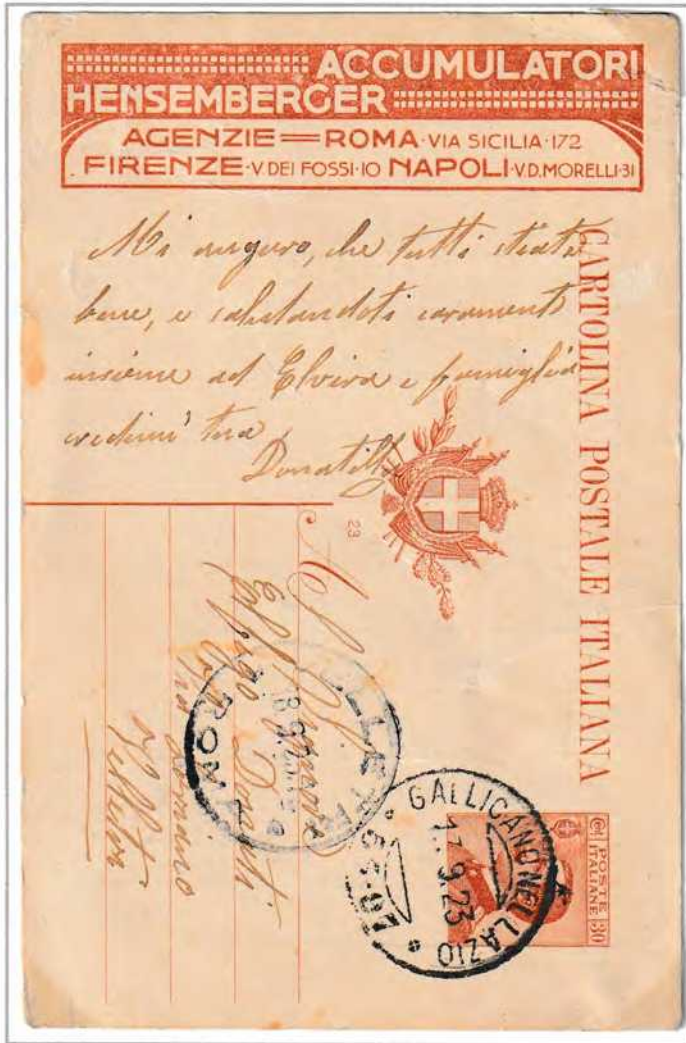 ACCUMULATORI
HENSEMBERGER
AGENZIE = ROMA · VIA SICILIA · 172
FIRENZE · V. DEI FOSSI · 10 NAPOLI · V. D. MORELLI · 31
Mi auguro, che tutti stiate
bene, e salutandoti caramente
insieme ad Elvira e famiglia
credimi tua
Donatilla
CARTOLINA POSTALE ITALIANA
23
POSTE
ITALIANE
30
GALLICANO NEL LAZIO
17.9.23
* 55-07 *
ROMA
Velletri